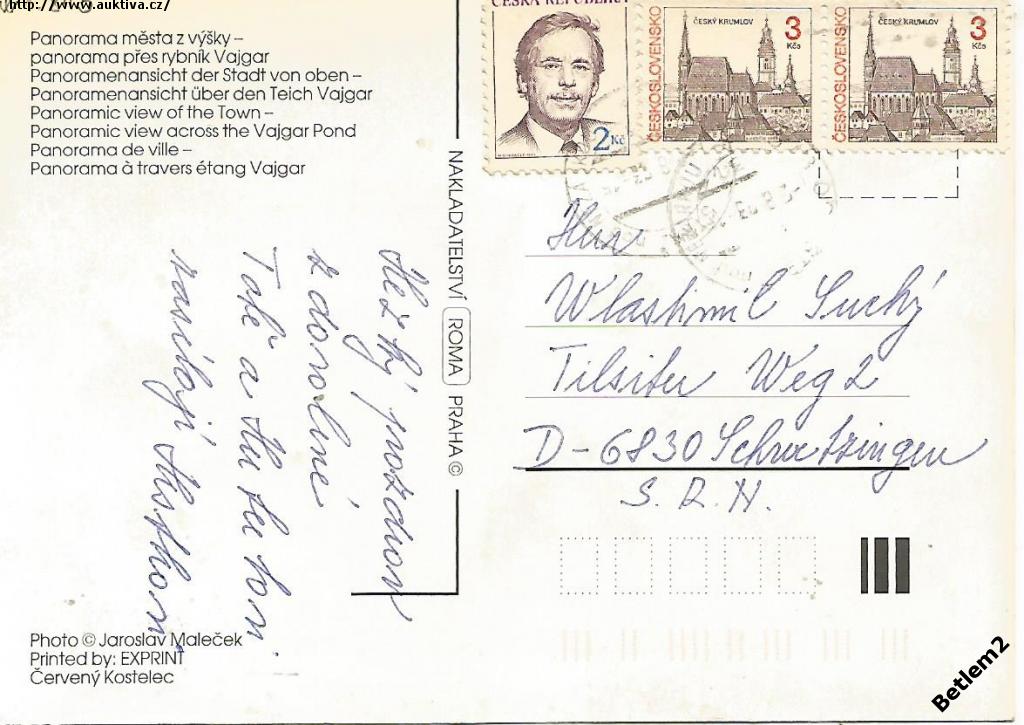 http://www.auktiva.cz/
Panorama města z výšky –
panorama přes rybník Vajgar
Panoramenansicht der Stadt von oben –
Panoramenansicht über den Teich Vajgar
Panoramic view of the Town –
Panoramic view across the Vajgar Pond
Panorama de ville –
Panorama à travers étang Vajgar
ČESKÁ REPUBLIKA
2 Kč
ČESKOSLOVENSKO
ČESKÝ KRUMLOV
3
Kčs
ČESKOSLOVENSKO
ČESKÝ KRUMLOV
3
Kčs
NAKLADATELSTVÍ ROMA PRAHA ©
Hezký pozdrav
z dovolené
a
posílají
Herr
Wlastimil Suchý
Tilsiter Weg 2
D-6830 Schwetzingen
S. R. N.
Photo © Jaroslav Maleček
Printed by: EXPRINT
Červený Kostelec
Betlem2